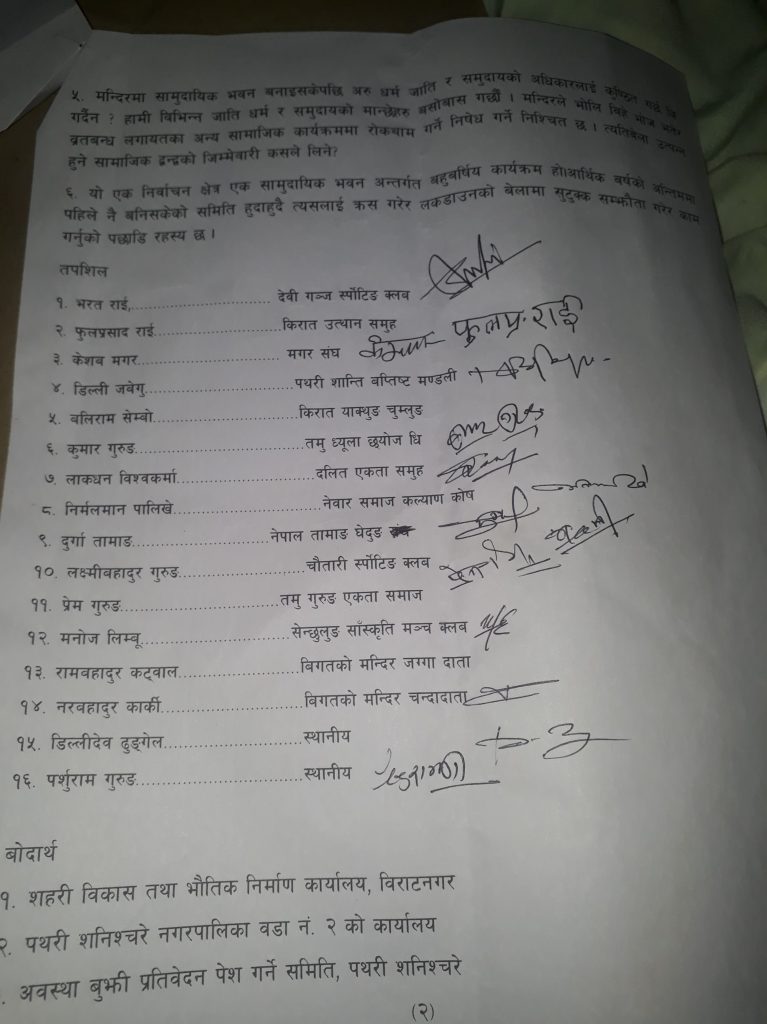 ५. मन्दिरमा सामुदायिक भवन बनाइसकेपछि अरु धर्म जाति र समुदायको अधिकारलाई कुण्ठित गर्छ कि
गर्दैन ? हामी विभिन्न जाति धर्म र समुदायको मान्छेहरु बसोबास गर्छौं । मन्दिरले भोलि बिहे भोज भतेर
ब्रतबन्ध लगायतका अन्य सामाजिक कार्यक्रममा रोकथाम गर्ने निषेध गर्ने निश्चित छ । त्यतिबेला उत्पन्न
हुने सामाजिक द्वन्द्वको जिम्मेवारी कसले लिने?
६. यो एक निर्वाचन क्षेत्र एक सामुदायिक भवन अन्तर्गत बहुबर्षिय कार्यक्रम हो।आर्थिक बर्षको अन्तिममा
पहिले नै बनिसकेको समिति हुदाहुदै त्यसलाई क्रस गरेर लकडाउनको बेलामा सुटुक्क सम्झौता गरेर काम
गर्नुको पछाडि रहस्य छ ।
तपशिल
१. भरत राई,........................ देवी गञ्ज स्पोटिङ क्लव
२. फुलप्रसाद राई......................किरात उत्थान समुह फुलप्र. राई
३. केशब मगर......................... मगर संघ
४. डिल्ली जबेगु..........................पथरी शान्ति वप्तिष्ट मण्डली
५. बलिराम सेम्बो.........................किरात याक्थुङ चुम्लुङ
६. कुमार गुरुङ...........................तमु ध्यूला छ्योज धि
७. लाकधन विश्वकर्मा.....................दलित एकता समुह
८. निर्मलमान पालिखे.......................नेवार समाज कल्याण कोष
९. दुर्गा तामाङ.......................नेपाल तामाङ घेदुङ
१०. लक्ष्मीवहादुर गुरुङ.....................चौतारी स्पोटिङ क्लव
११. प्रेम गुरुङ..........................तमु गुरुङ एकता समाज
१२. मनोज लिम्बू.........................सेन्छुलुङ साँस्कृति मञ्च क्लव
१३. रामवहादुर कट्वाल....................बिगतको मन्दिर जग्गा दाता
१४. नरवहादुर कार्की.......................विगतको मन्दिर चन्दादाता
१५. डिल्लीदेव ढुङ्गेल.......................स्थानीय
१६. पर्शुराम गुरुङ..........................स्थानीय
बोदार्थ
१. शहरी विकास तथा भौतिक निर्माण कार्यालय, विराटनगर
२. पथरी शनिश्चरे नगरपालिका वडा नं. २ को कार्यालय
. अवस्था बुझी प्रतिवेदन पेश गर्ने समिति, पथरी शनिश्चरे
(२)